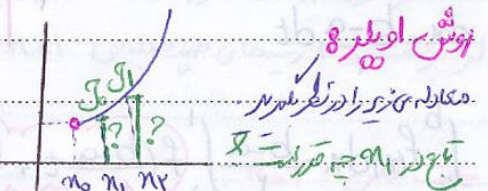 روش اویلر:
معادله‌ی زیر را در نظر بگیرید.
تابع در x₁ چه قدر است؟
y₀ y₁
? ?
x₀ x₁ x₂